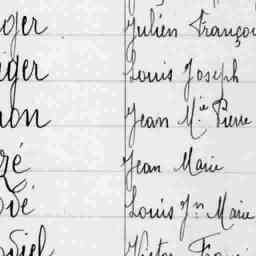 oger Julien François
iger Louis Joseph
non Jean M.ie Pierre
ré Jean Marie
ové Louis Jn Marie
odiel Victor